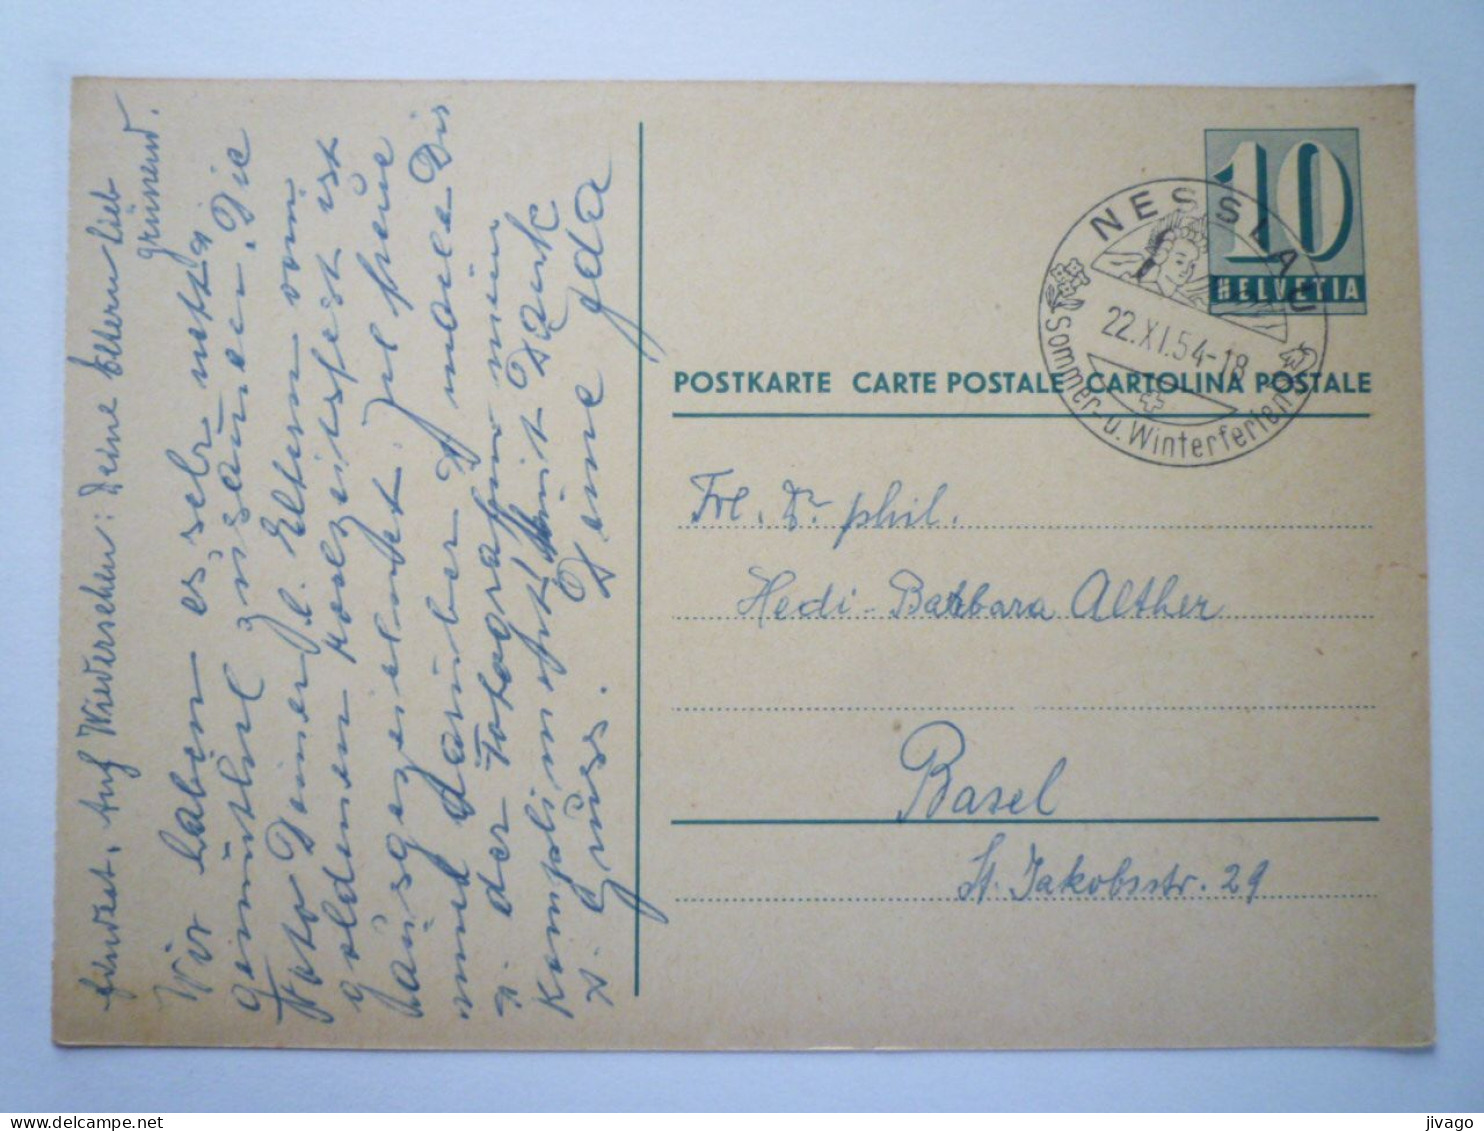 10
HELVETIA
NESSLAU
22.XI.54-18
Sommer- u. Winterferien
POSTKARTE CARTE POSTALE CARTOLINA POSTALE
Frl. Dr phil.
Hedi-Barbara Alther
Basel
St. Jakobsstr. 29
findest. Auf Wiedersehen: Deine Eltern lieb
grüssend.
Wir haben es sehr nett &
gemütlich zusammen. Die
Foto Deiner l. Eltern vom
goldenen Hochzeitsfest ist
ausgezeichnet. Ich freue
mich darüber & mache Dir
& der Fotografin mein
Kompliment mit Dank
& Gruss. Deine Ida
delcampe.net
jivago